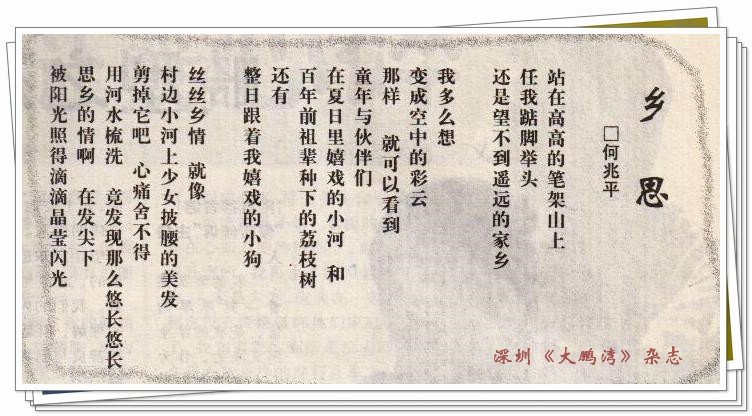 乡思
□何兆平
站在高高的笔架山上
任我踮脚举头
还是望不到遥远的家乡
我多么想
变成空中的彩云
那样 就可以看到
童年与伙伴们
在夏日里嬉戏的小河 和
百年前祖辈种下的荔枝树
还有
整日跟着我嬉戏的小狗
丝丝乡情 就像
村边小河上少女披腰的美发
剪掉它吧 心痛舍不得
用河水梳洗 竟发现那么悠长悠长
思乡的情啊 在发尖下
被阳光照得滴滴晶莹闪光
深圳《大鹏湾》杂志